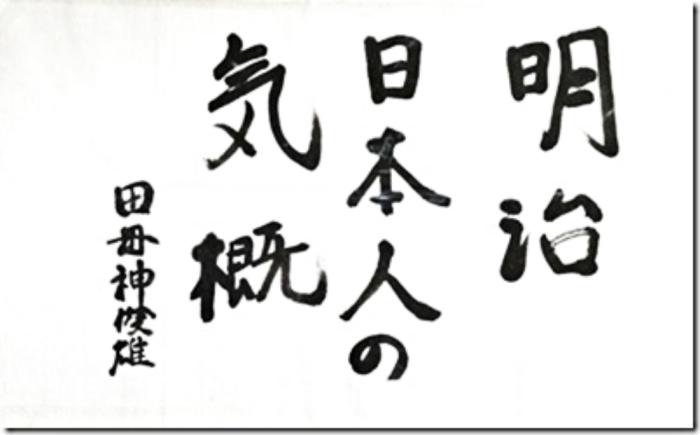 明治
日本人の
気概
田母神俊雄